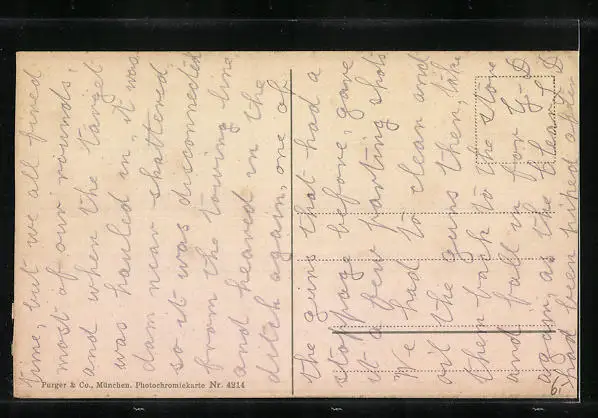 time, but we all fired
most of our rounds,
and when the target
was hauled in, it was
dam near shattered,
so it was disconnected
from the towing line
and heaved in the
ditch again, one of
the guns that had a
stoppage before, gave
it a few parting shots
We had to clean and
oil the guns then, take
them back to the store
and fall in for G-D
again as the
had been hiked after
Purger & Co., München. Photochromiekarte Nr. 4214